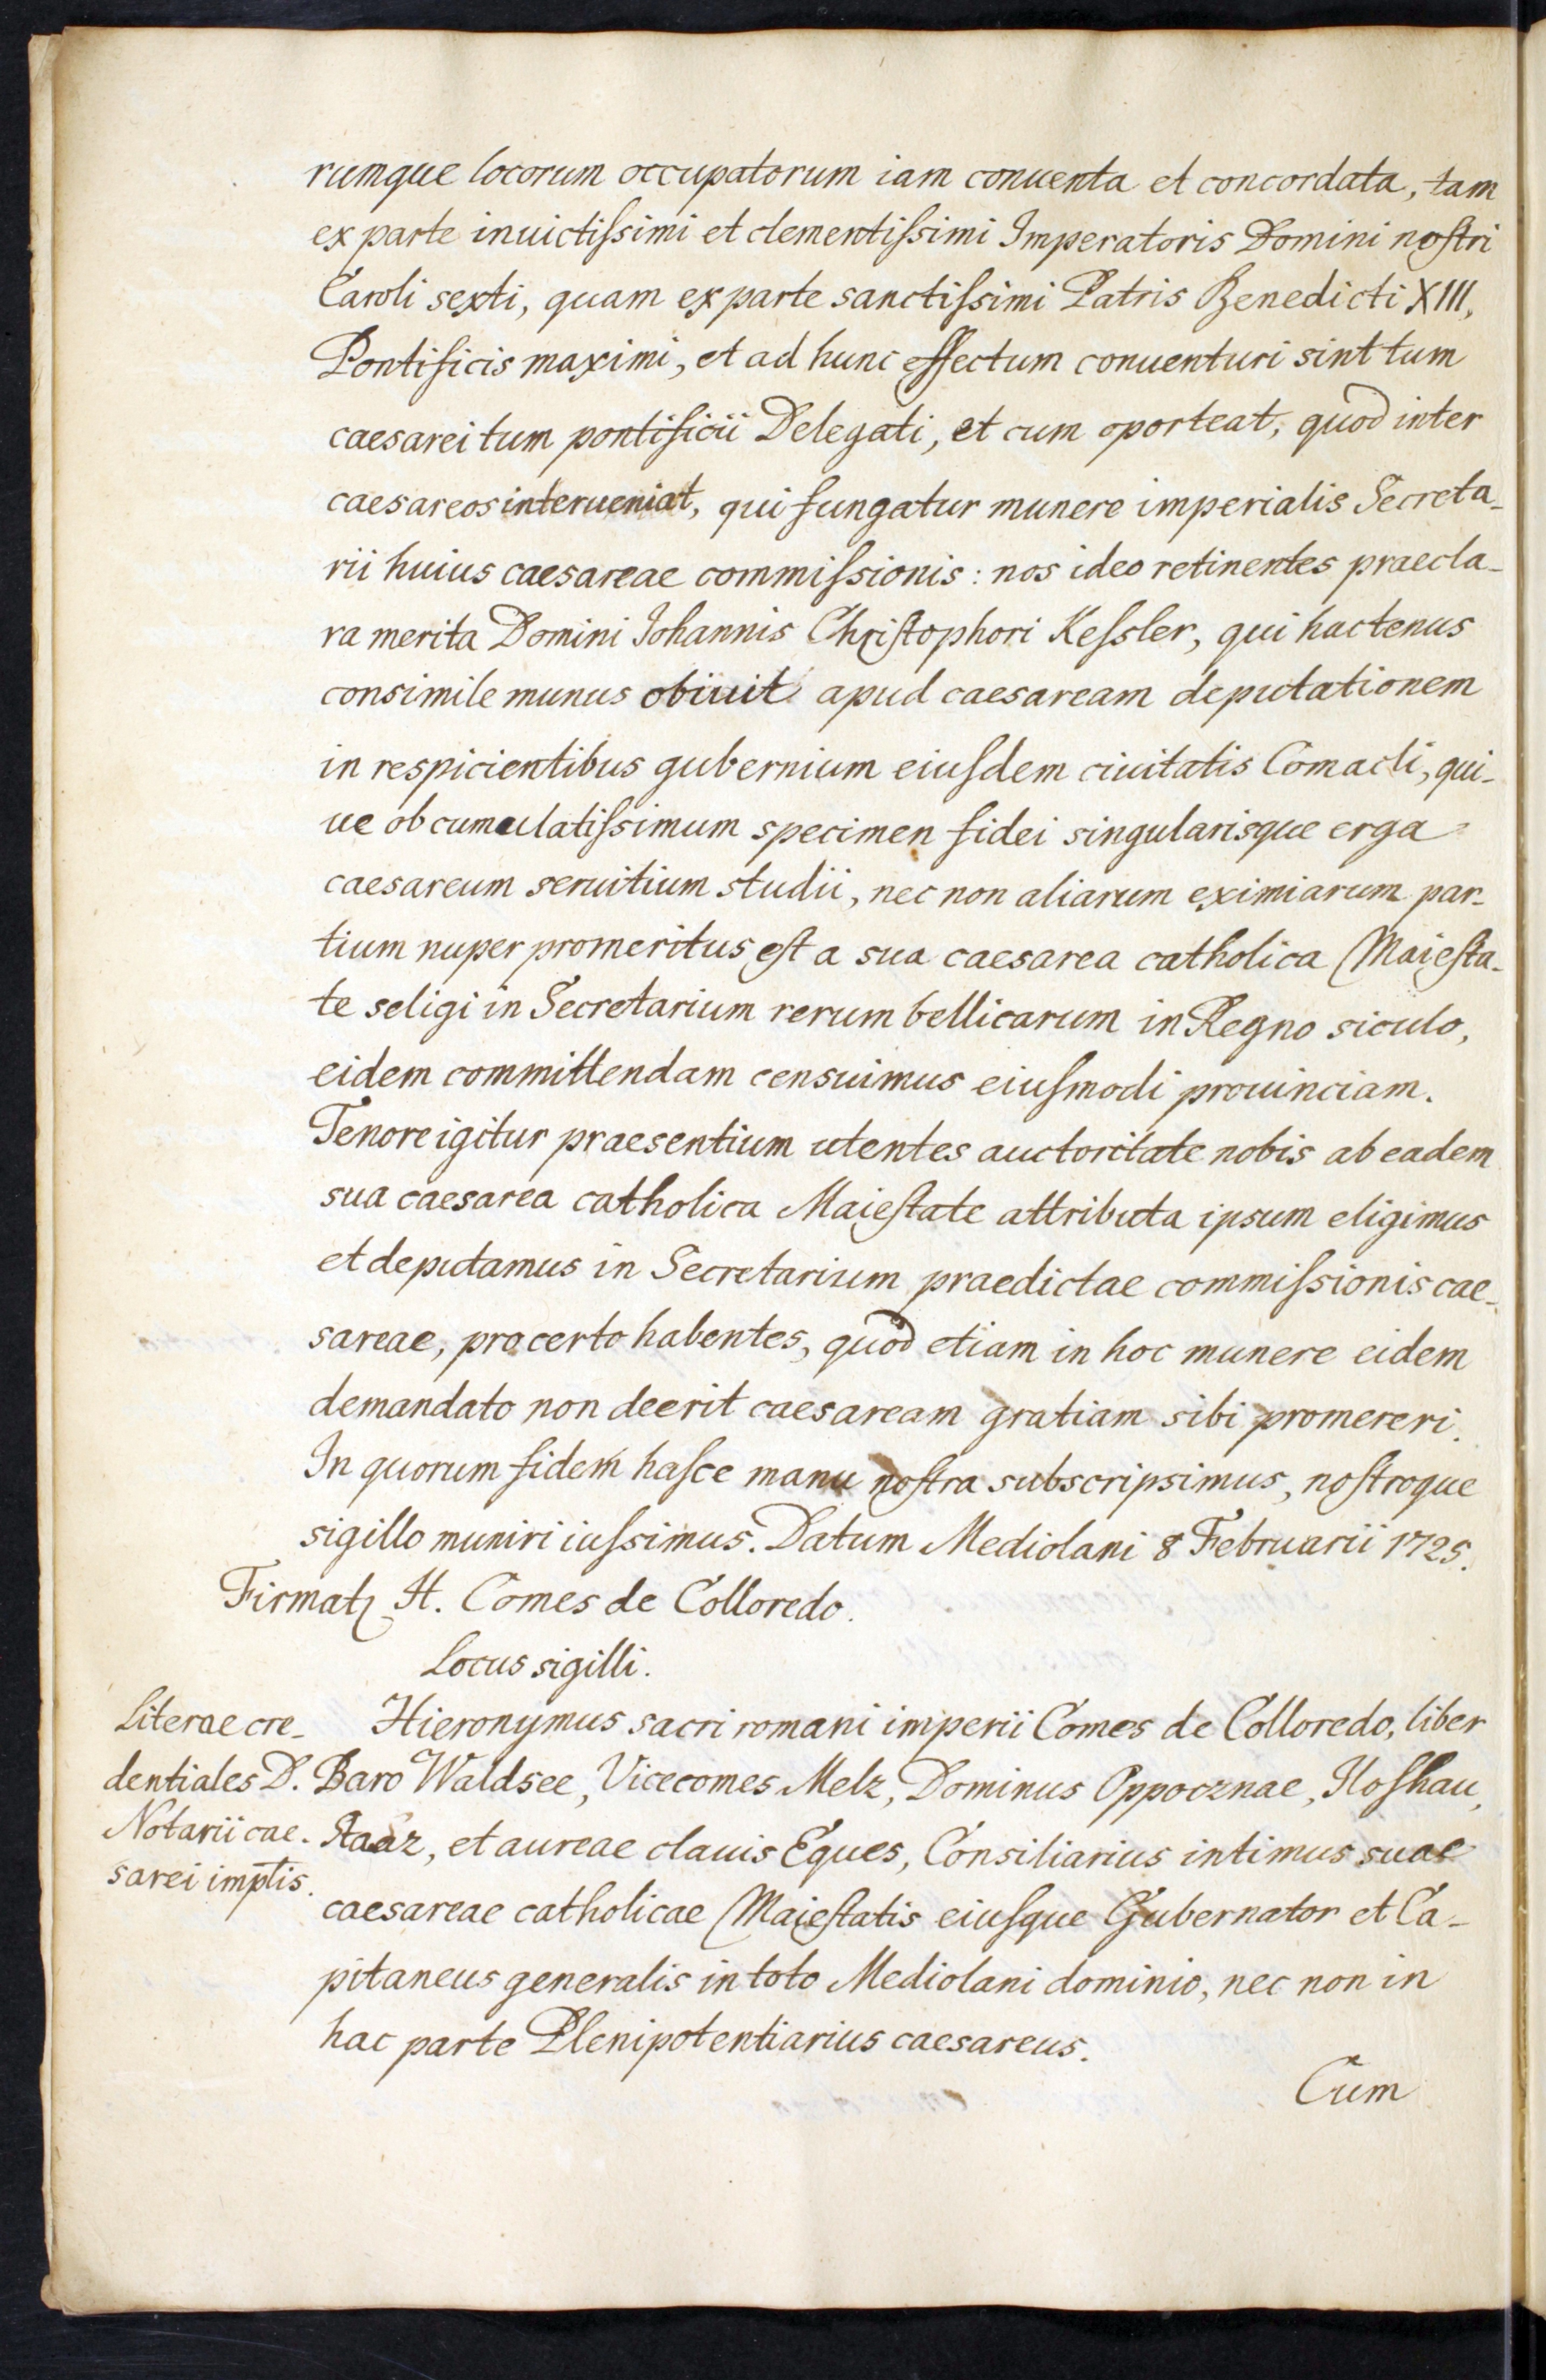 rumque locorum occupatorum iam conuenta et concordata, tam
ex parte inuictiſsimi et clementiſsimi Imperatoris Domini noſtri
Caroli sexti, quam ex parte sanctiſsimi Patris Benedicti XIII,
Pontificis maximi, et ad hunc effectum conuenturi sint tum
caesarei tum pontificii Delegati, et cum oporteat, quod inter
caesareos interueniat, qui fungatur munere imperialis Secreta-
rii huius caesareae commiſsionis: nos ideo retinentes praecla-
ra merita Domini Iohannis Chriſtophori Keſsler, qui hactenus
consimile munus obiuit apud caesaream deputationem
in respicientibus gubernium eiuſdem ciuitatis Comacli, qui-
ue ob cumulatiſsimum specimen fidei singularisque erga
caesareum seruitium studii, nec non aliarum eximiarum par-
tium nuper promeritus eſt a sua caesarea catholica Maieſta-
te seligi in Secretarium rerum bellicarum in Regno siculo,
eidem committendam censuimus eiuſmodi prouinciam.
Tenore igitur praesentium utentes auctoritate nobis ab eadem
sua caesarea catholica Maieſtate attributa ipsum eligimus
et deputamus in Secretarium praedictae commiſsionis cae-
sareae, pro certo habentes, quod etiam in hoc munere eidem
demandato non deerit caesaream gratiam sibi promereri.
In quorum fidem haſce manu noſtra subscripsimus, noſtroque
sigillo muniri iuſsimus. Datum Mediolani 8 Februarii 1725.
Firmatꝫ H. Comes de Colloredo.
Locus sigilli.
Literae cre-
dentiales D.
Notarii cae-
sarei imp̄tis.
Hieronymus sacri romani imperii Comes de Colloredo, liber
Baro Waldsee, Vicecomes Melz, Dominus Oppocznae,
Staaz, et aureae clauis Eques, Consiliarius intimus suae
caesareae catholicae Maieſtatis eiuſque Gubernator et Ca-
pitaneus generalis in toto Mediolani dominio, nec non in
hac parte Plenipotentiarius caesareus.
Cum